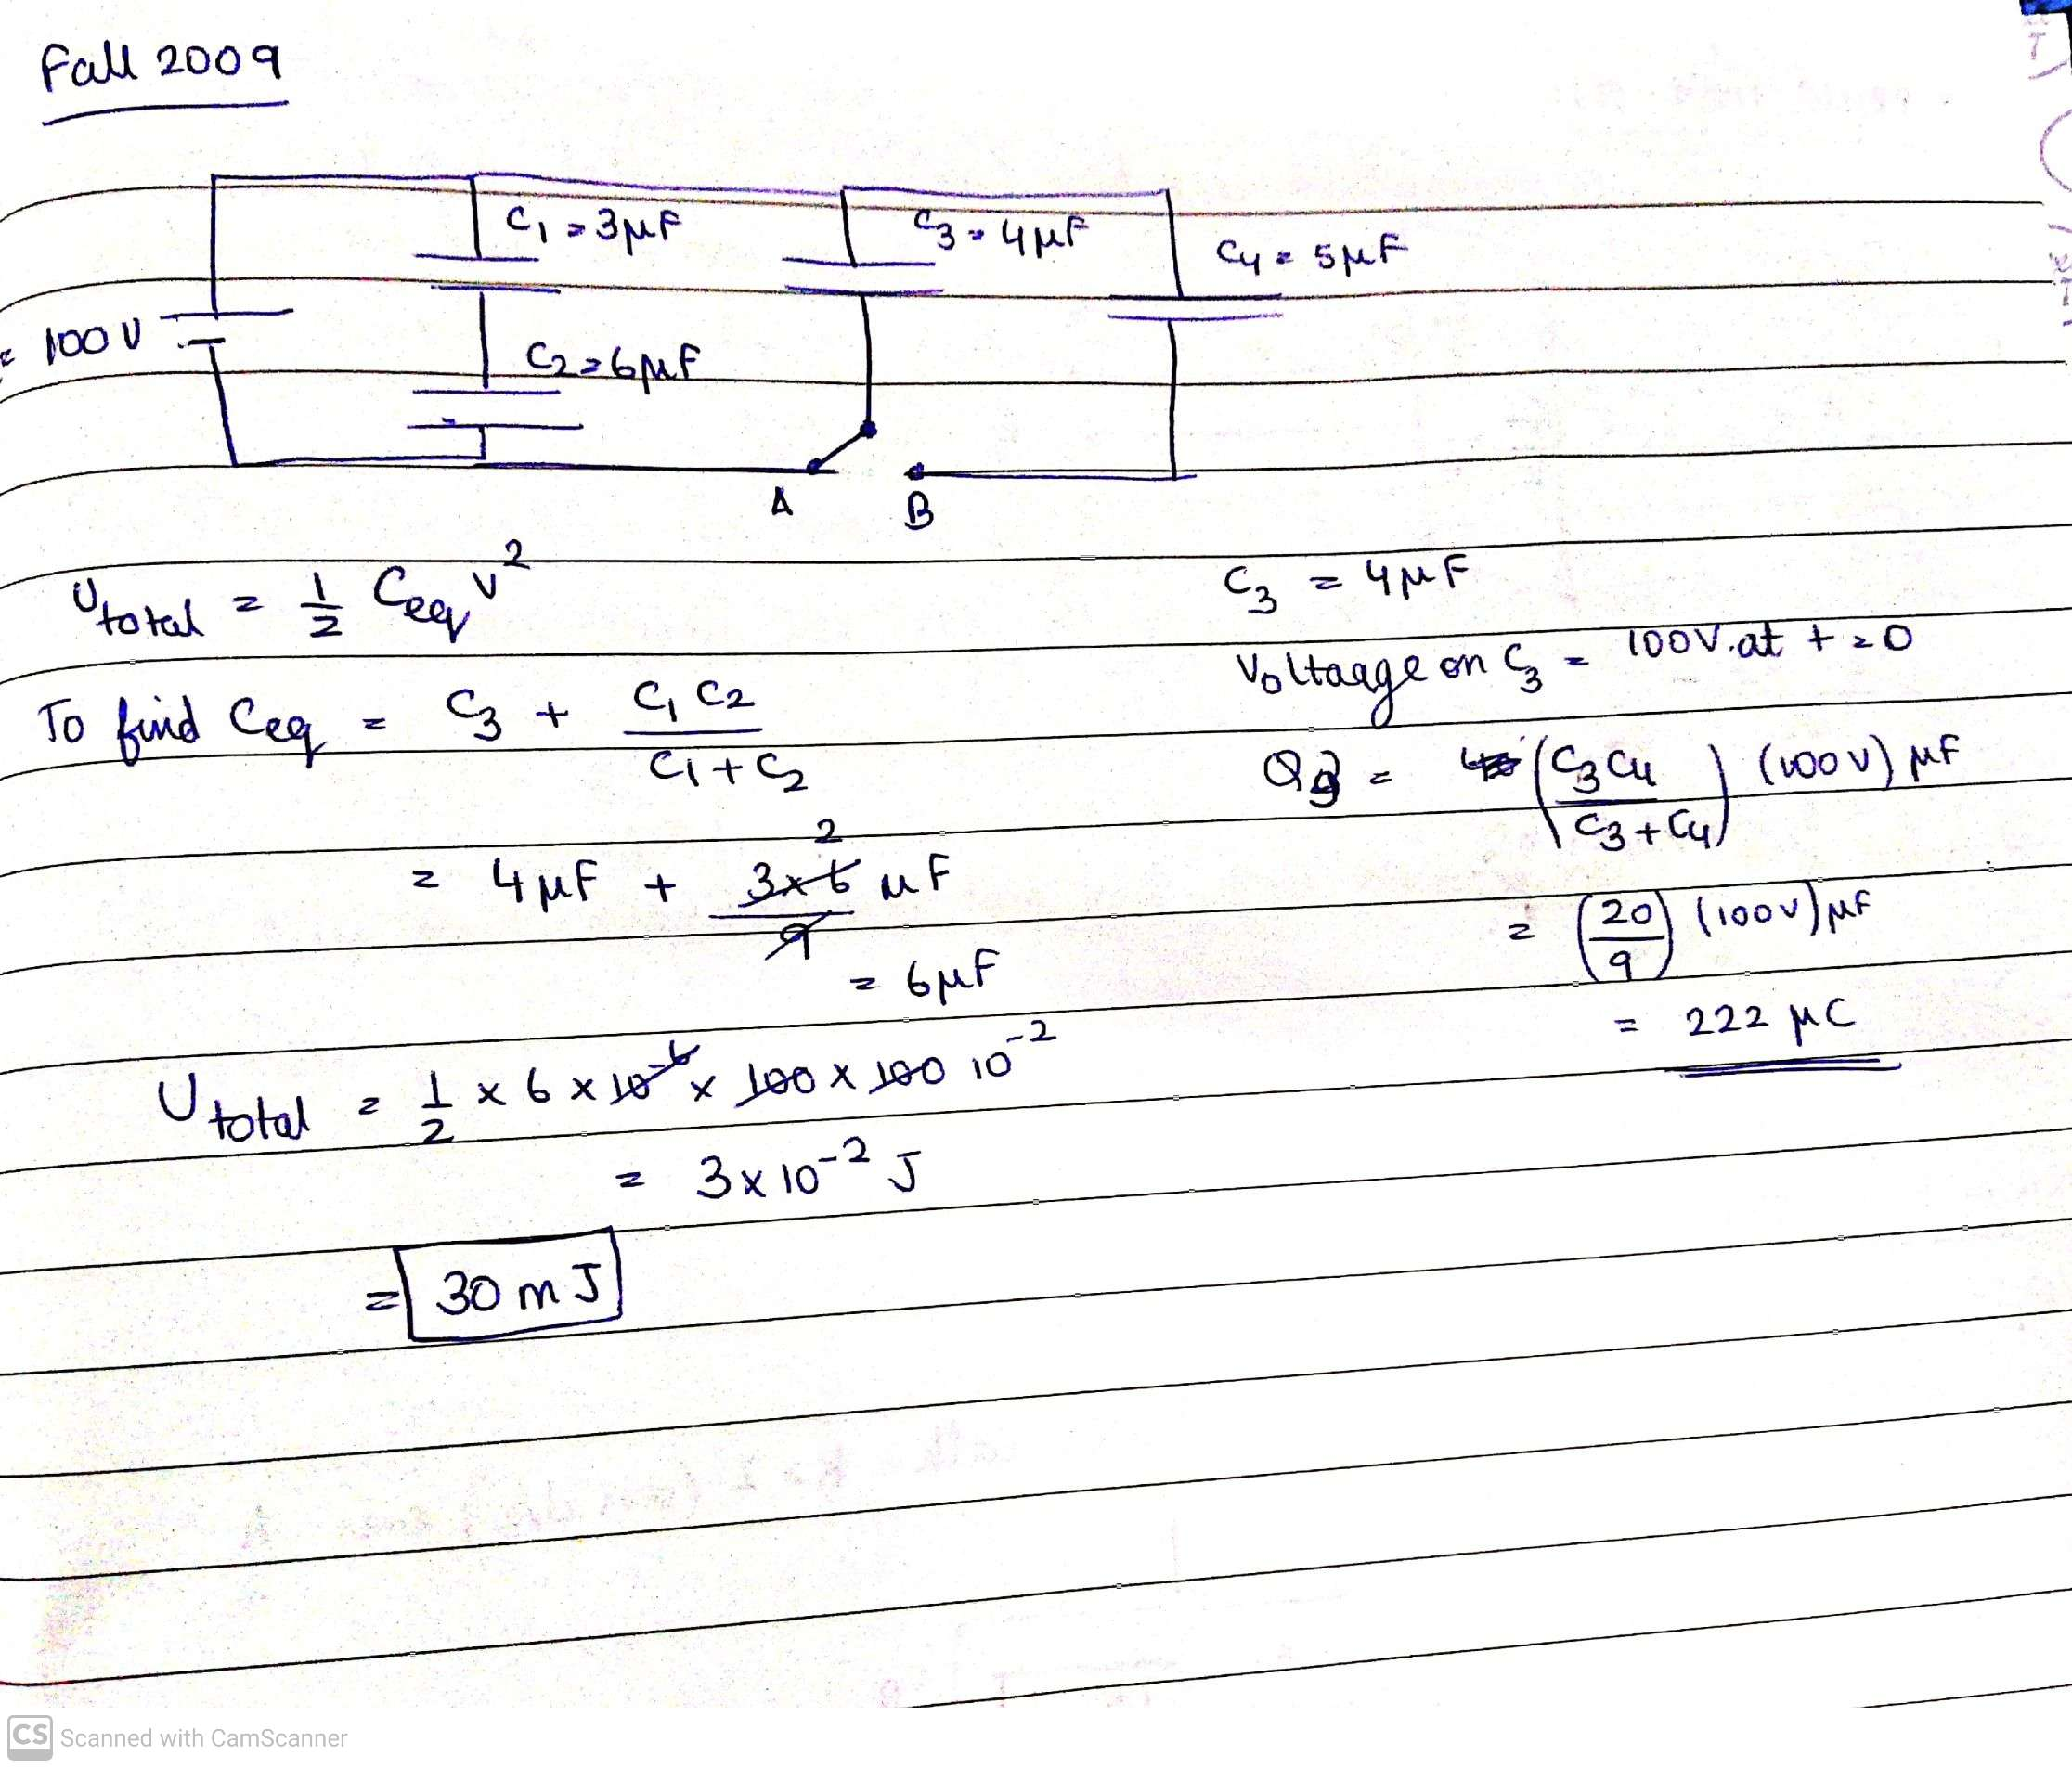 Fall 2009
C1 = 3μF
C3 = 4μF
C4 = 5μF
= 100 V
C2 = 6μF
A
B
Utotal = 1/2 Ceq V²
To find Ceq = C3 + C1 C2 / C1 + C2
= 4μF + 3×6 / 9 μF
2
= 6μF
Utotal = 1/2 × 6 × 10⁻⁶ × 100 × 100 10⁻²
= 3 × 10⁻² J
= 30 mJ
C3 = 4μF
Voltaage on C3 = 100V. at t = 0
Q3 = (C3 C4 / C3 + C4) (100 V) μF
= (20 / 9) (100 V) μF
= 222 μC
CS Scanned with CamScanner